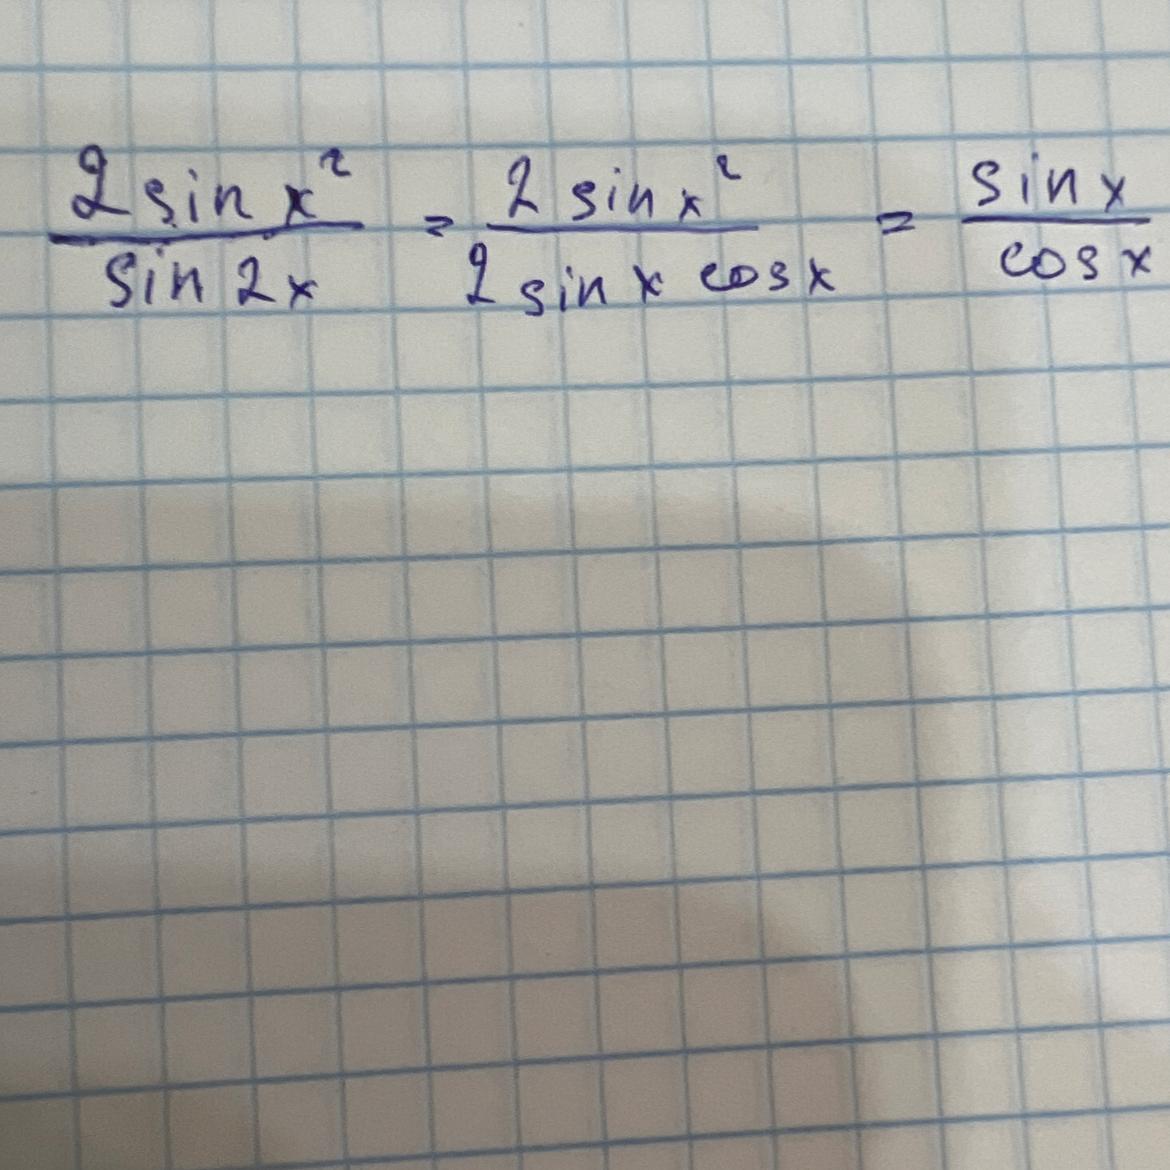 2 sin x² / sin 2x = 2 sin x² / 2 sin x cos x = sin x / cos x